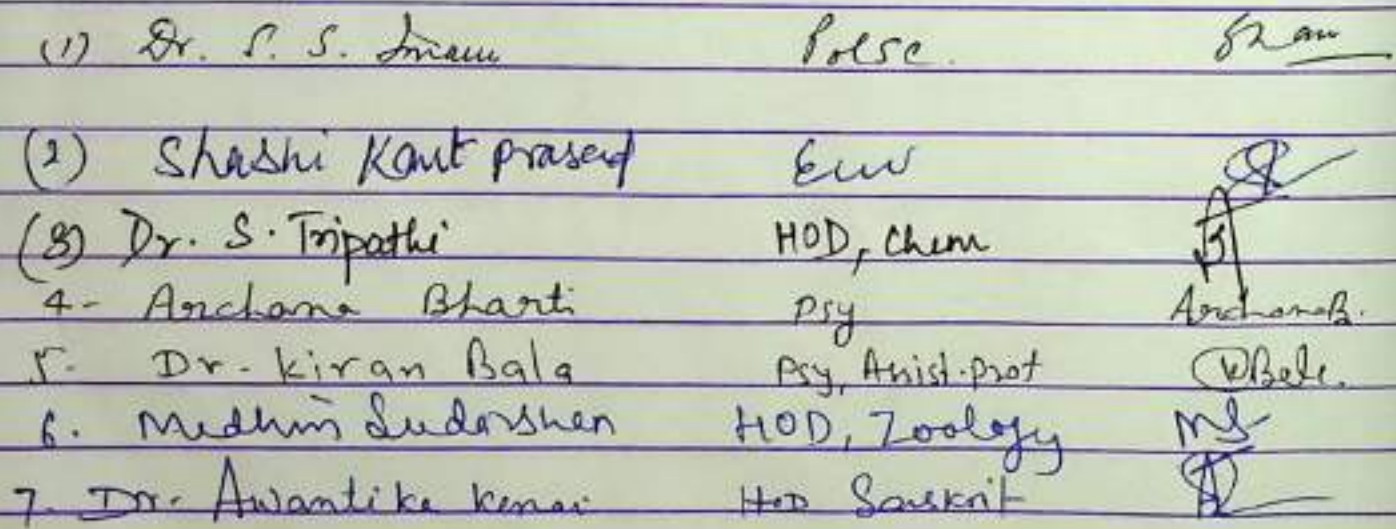 (1) Dr. S. S. Imam Polsc.
(2) Shashi Kant prasad
(3) Dr. S. Tripathi HOD, Chem
4- Archana Bharti Psy ArchanaB.
5. Dr. Kiran Bala Psy, Assist. Prof KBala.
6. Sudarshan HOD, Zoology MS
7. Dr. Awantika HOD Sanskrit